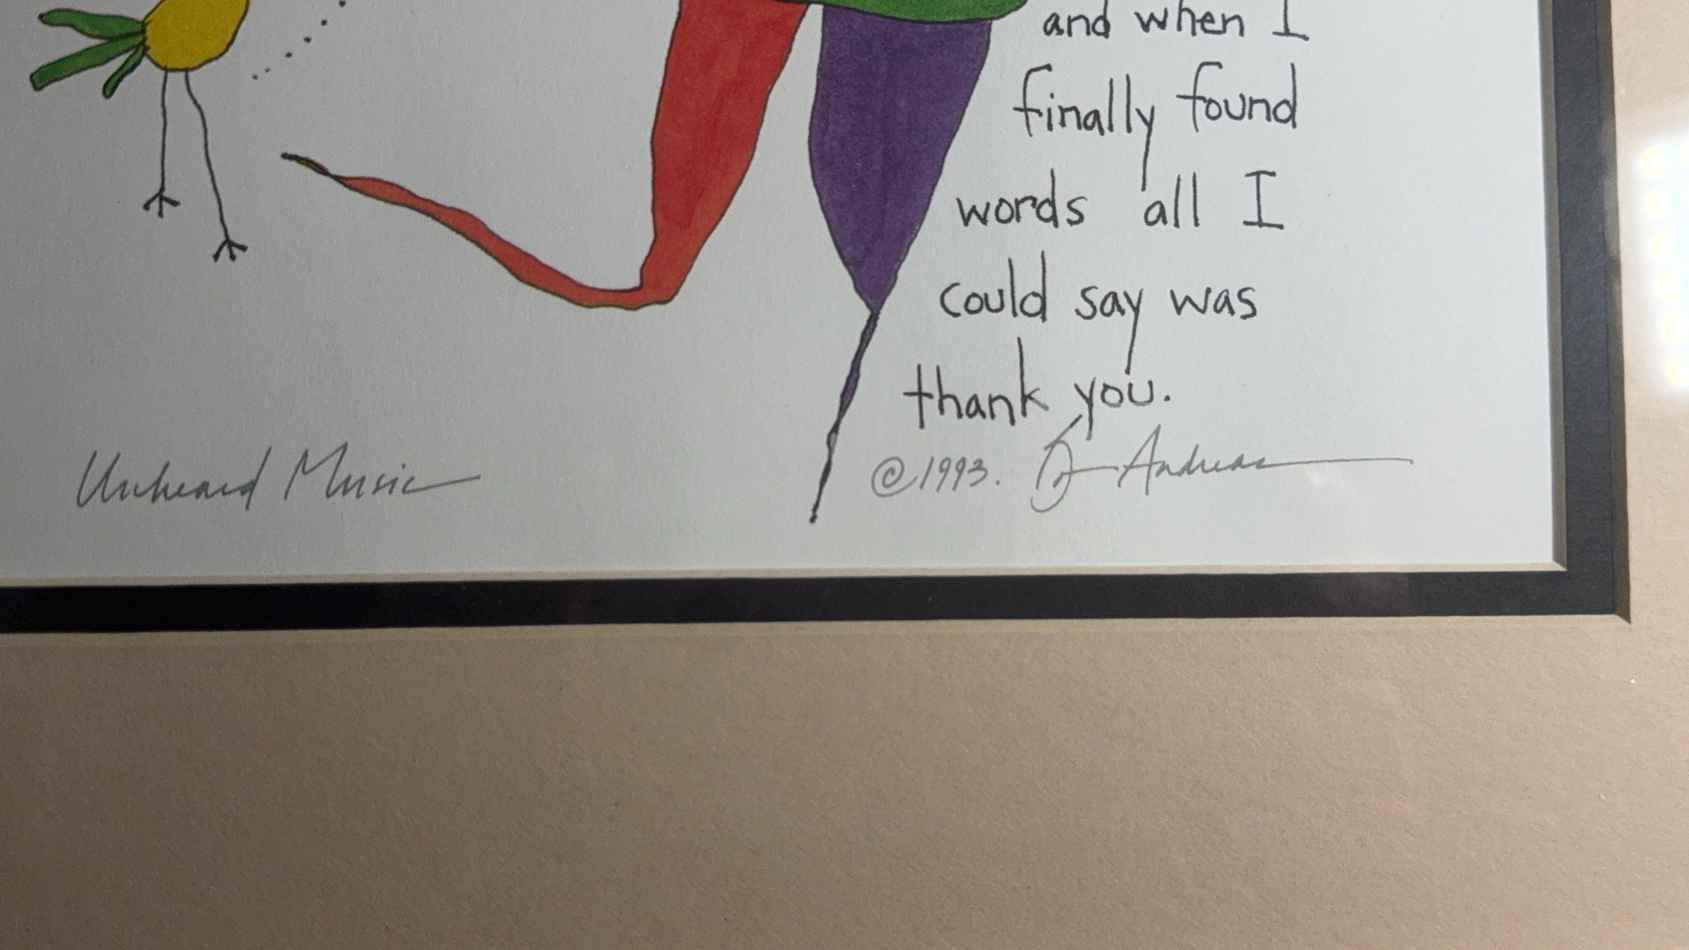 and when I
finally found
words all I
could say was
thank you.
Unheard Music
©1993. Andreas